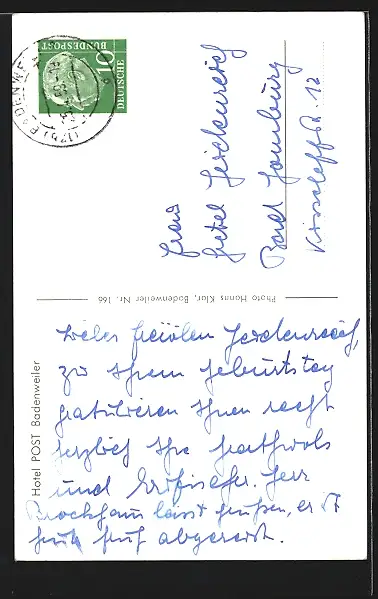 DEUTSCHE
BUNDESPOST
10
BADENWE
(17b)
Frau
Bad Homburg
12
Photo Hanns Klar, Badenweiler Nr. 166
Hotel POST Badenweiler
Liebes Fräulein
zu Ihrem Geburtstag
gratulieren Ihnen recht
herzlich Ihre
und Herr
Brockhaus lässt grüßen, er ist
heute früh abgereist.